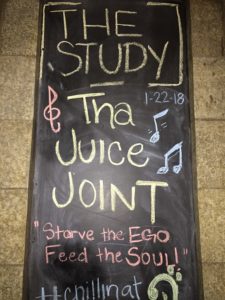 THE
STUDY
1-22-18
Tha
JUICE
JOINT
"Starve the EGO
Feed the SOUL!"
#chillinat